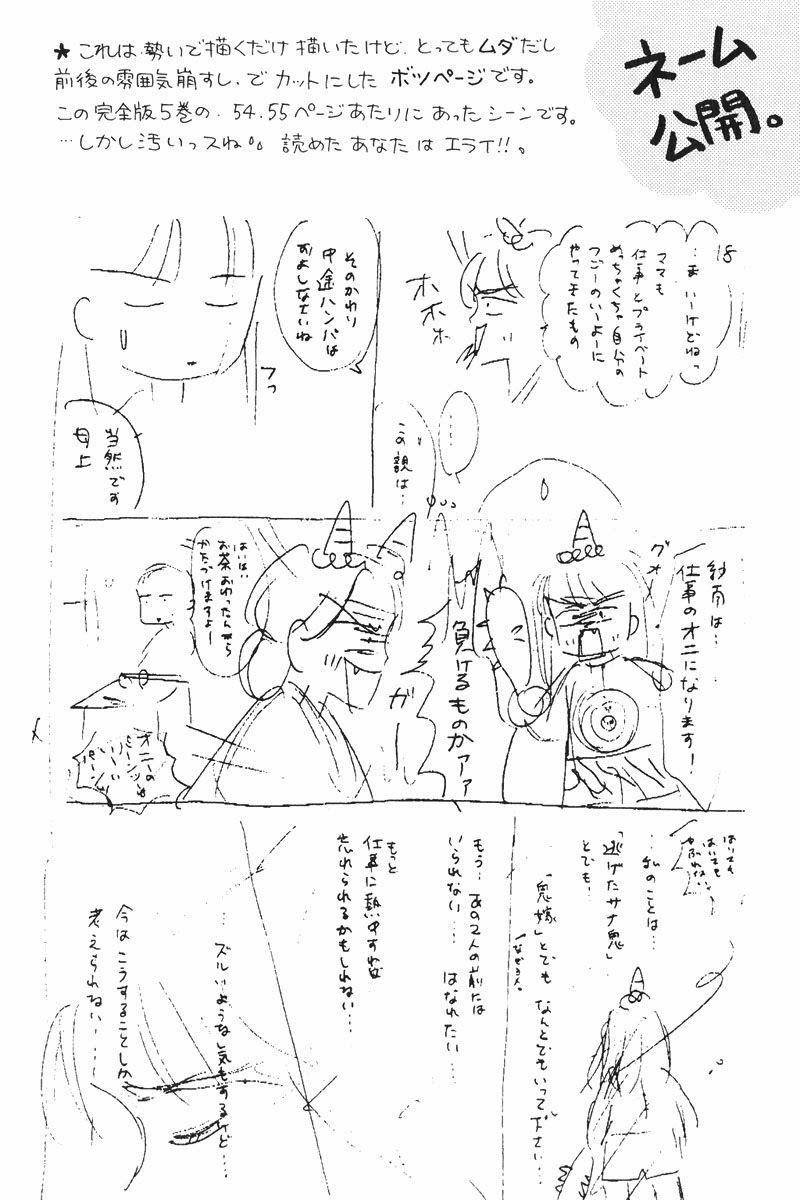 ネーム
公開。
★これは勢いで描くだけ描いたけど、とってもムダだし
前後の雰囲気崩すし、でカットにしたボツページです。
この完全版5巻の、54.55ページあたりにあったシーンです。
…しかし汚いっスね。読めたあなたはエライ!!。
18
…まいーけどねっ
ママも
仕事とプライベート
めっちゃくちゃ自分の
つごーのいーよーに
やってきたもの
ホホホ
そのかわり
中途ハンパは
およしなさいね
フっ
当然です
母上
……
この親は…
紗南は…
仕事のオニになります!
グオー
負けるものかァァ
ガ
はいはい
お茶おわったんなら
かたづけますよー
オニの
パンツは
いーい
パンツ
はいても
はいても
やぶれない
…私のことは…
「逃げたサナ鬼」
とでも…
「鬼嫁」とでもなんとでもいって下さい…
なぜヨメ。
もう…あの2人の前には
いられない…はなれたい…
もっと
仕事に熱中すれば
忘れられるかもしれない…
…ズルいような気もするけど…
今はこうすることしか
考えられない…